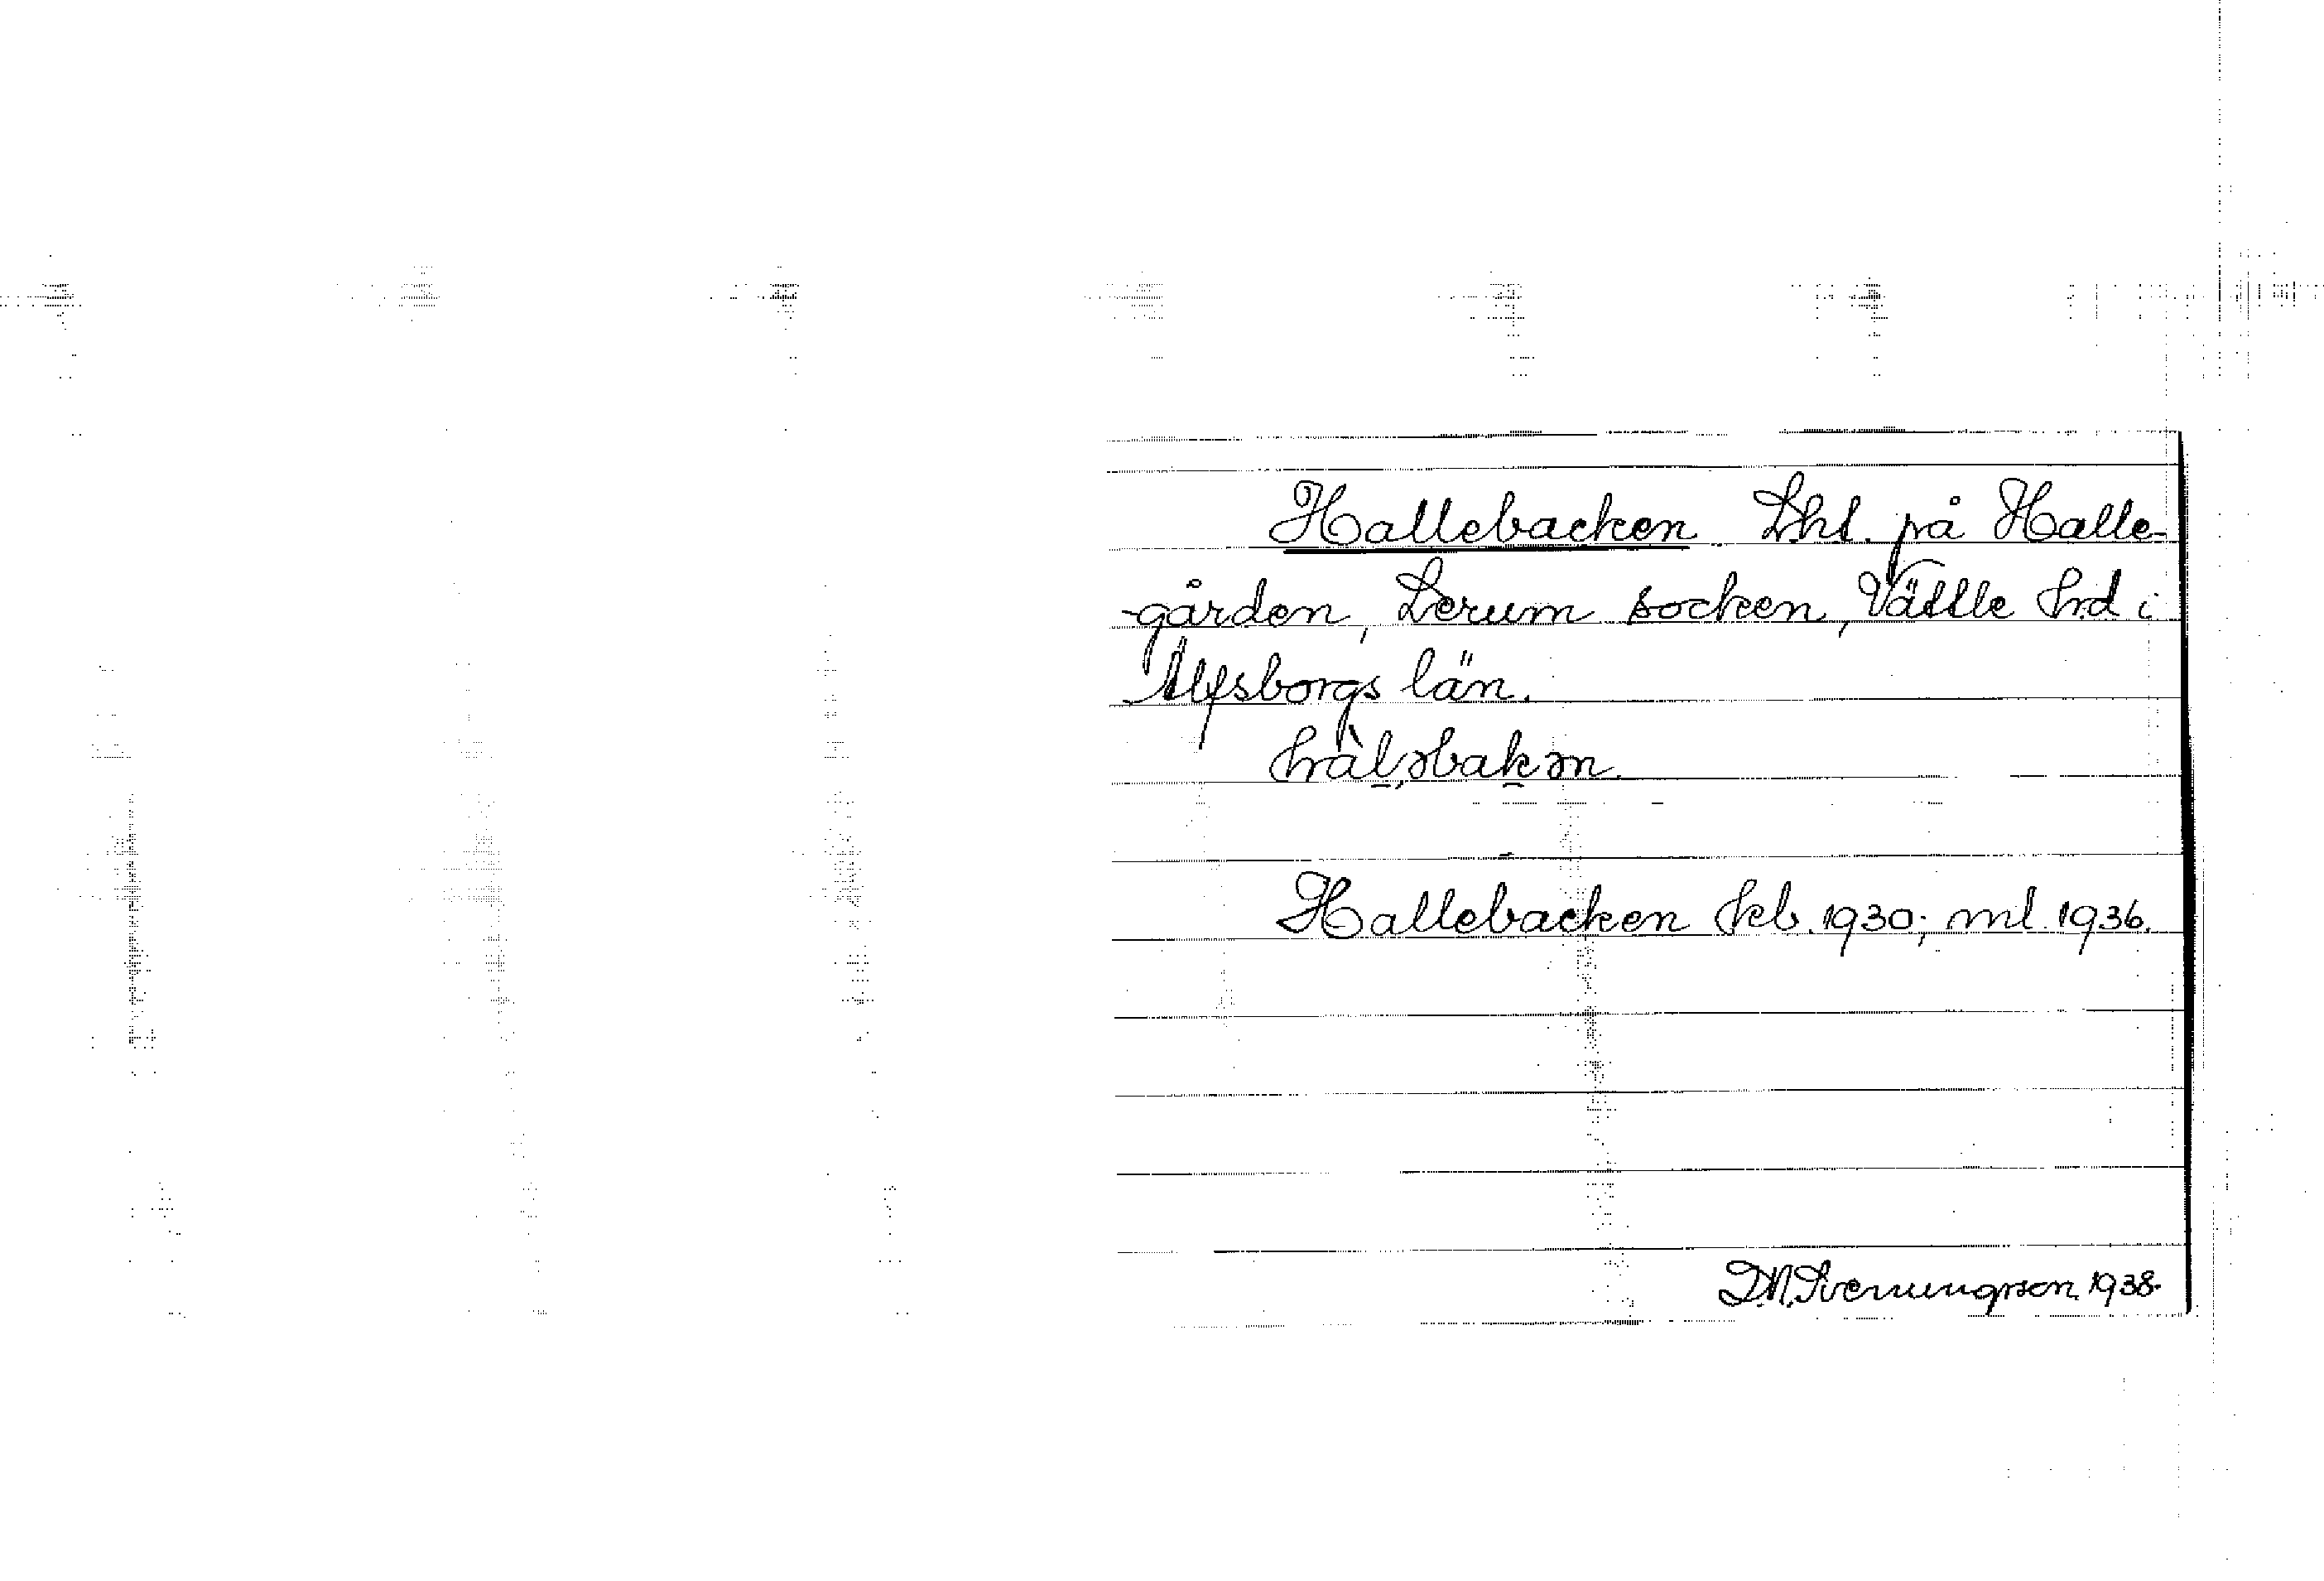 Hallebacken Lht. på Halle-
-gården, Lerum socken, Vättle hrd i
Älfsborgs län.
hàl̠əbak̠ən.
Hallebacken kb. 1930; ml. 1936.
D.N. Svenungsson 1938.